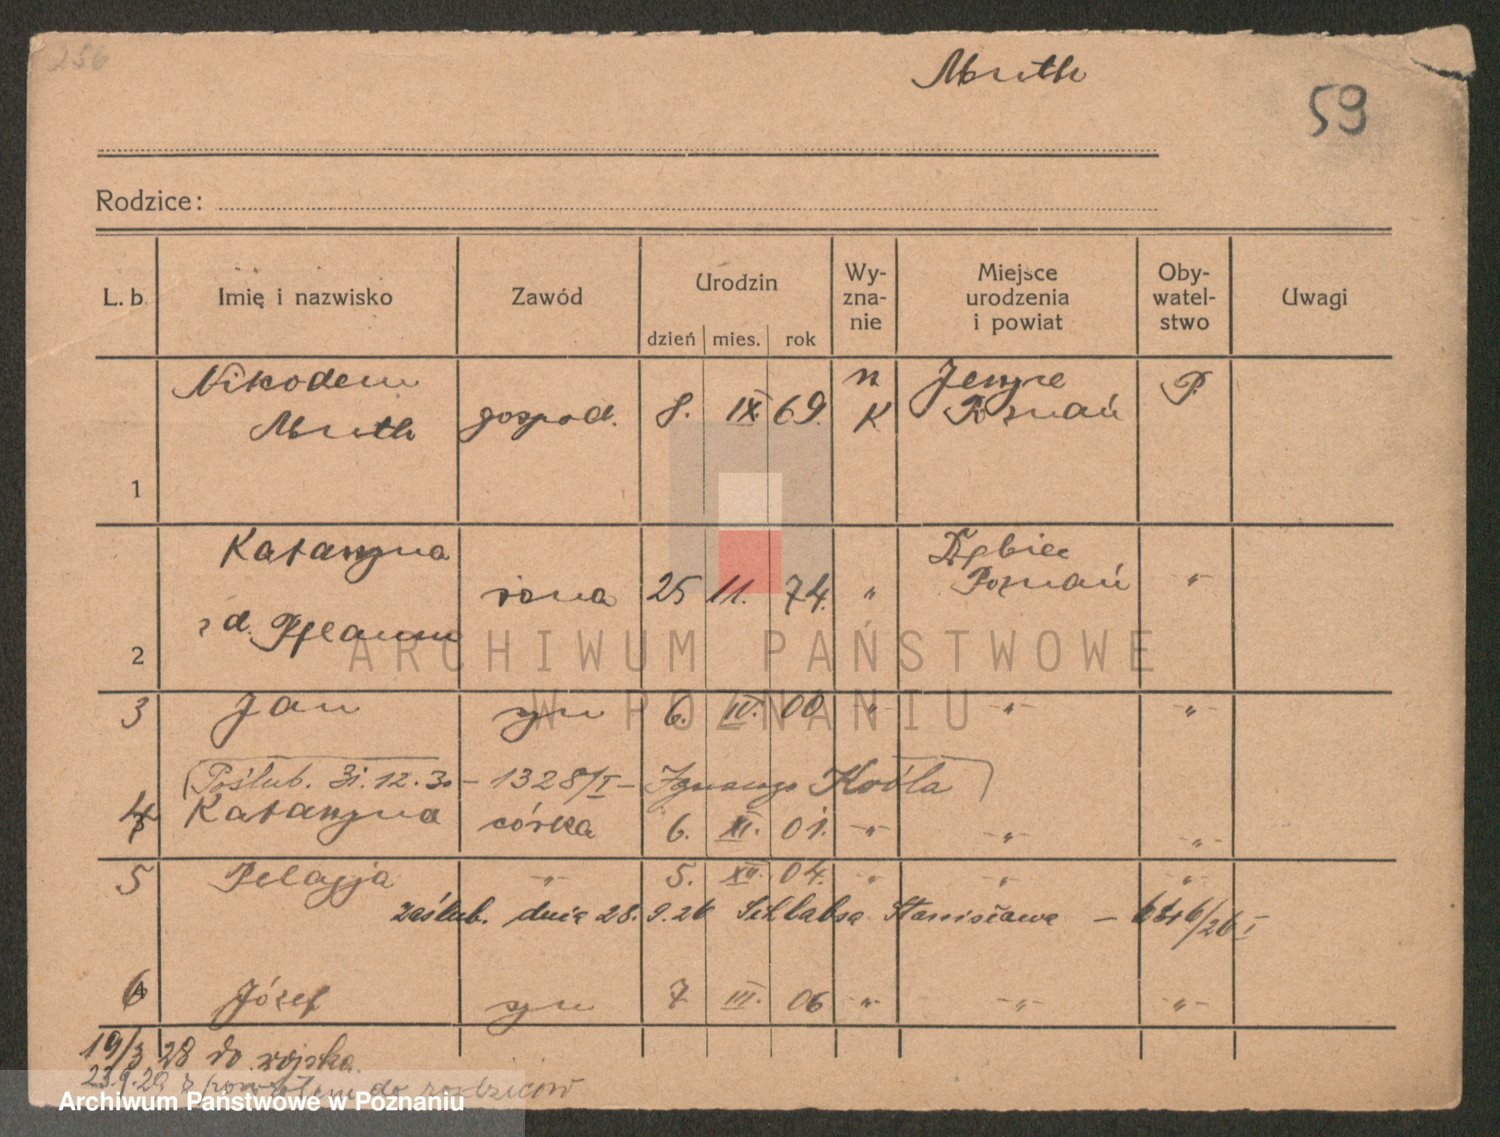 256
Muth
59
Rodzice:
L. b. Imię i nazwisko Zawód Urodzin dzień mies. rok Wy-zna-nie Miejsce urodzenia i powiat Oby-watel-stwo Uwagi
Nikodem n Jerzyce P.
Muth gospod. 8. IX. 69. K Poznań
1
Katarzyna Dębiec
żona 25 11. 74. " Poznań "
z d. Pflaum
2
ARCHIWUM PAŃSTWOWE
W POZNANIU
3 Jan syn 6. IV. 00 " " "
Poślub. 31.12.30 - 1328/I - Ignacego Koźla
4 Katarzyna córka 6. XI. 01. " " "
5 Pelagja " 5. XII. 04. " " "
zaślub. dnia 28.9.26 Schlabsa Stanisława - /26 I
6 Józef syn 7 III. 06 " " "
19/3 28 do wojska.
23.9.29 z powrotem do rodziców
Archiwum Państwowe w Poznaniu